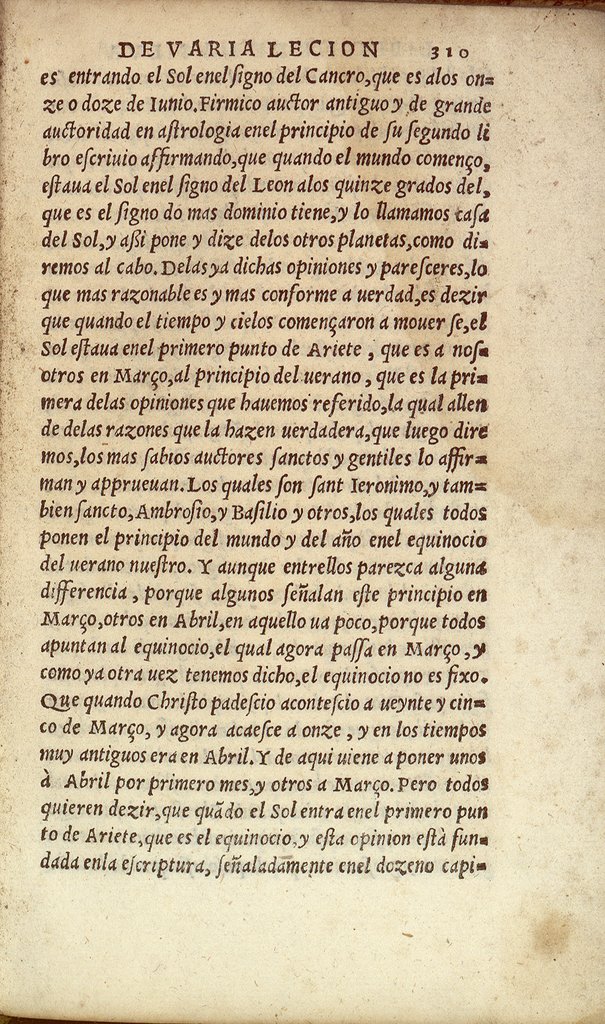 DE VARIA LECION 310
es entrando el Sol enel ſigno del Cancro,que es alos on=
ze o doze de Iunio.Firmico auctor antiguo y de grande
auctoridad en aſtrologia enel principio de ſu ſegundo li
bro eſcriuio affirmando,que quando el mundo començo,
eſtaua el Sol enel ſigno del Leon alos quinze grados del,
que es el ſigno do mas dominio tiene,y lo llamamos caſa
del Sol,y aßi pone y dize delos otros planetas,como di=
remos al cabo.Delas ya dichas opiniones y pareſceres,lo
que mas razonable es y mas conforme a uerdad,es dezir
que quando el tiempo y cielos començaron a mouer ſe,el
Sol eſtaua enel primero punto de Ariete, que es a noſ=
otros en Março,al principio del uerano, que es la pri=
mera delas opiniones que hauemos referido,la qual allen
de delas razones que la hazen uerdadera,que luego dire
mos,los mas ſabios auctores ſanctos y gentiles lo affir=
man y apprueuan.Los quales ſon ſant Ieronimo,y tam=
bien ſancto,Ambroſio,y Baſilio y otros,los quales todos
ponen el principio del mundo y del año enel equinocio
del uerano nueſtro. Y aunque entrellos parezca alguna
differencia, porque algunos ſeñalan eſte principio en
Março,otros en Abril,en aquello ua poco,porque todos
apuntan al equinocio,el qual agora paſſa en Março,y
como ya otra uez tenemos dicho,el equinocio no es fixo.
Que quando Chriſto padeſcio aconteſcio a ueynte y cin=
co de Março, y agora acaeſce a onze, y en los tiempos
muy antiguos era en Abril.Y de aqui uiene a poner unos
à Abril por primero mes,y otros a Março.Pero todos
quieren dezir,que quãdo el Sol entra enel primero pun
to de Ariete,que es el equinocio,y eſta opinion eſtà fun=
dada enla eſcriptura, ſeñaladamente enel dozeno capi=